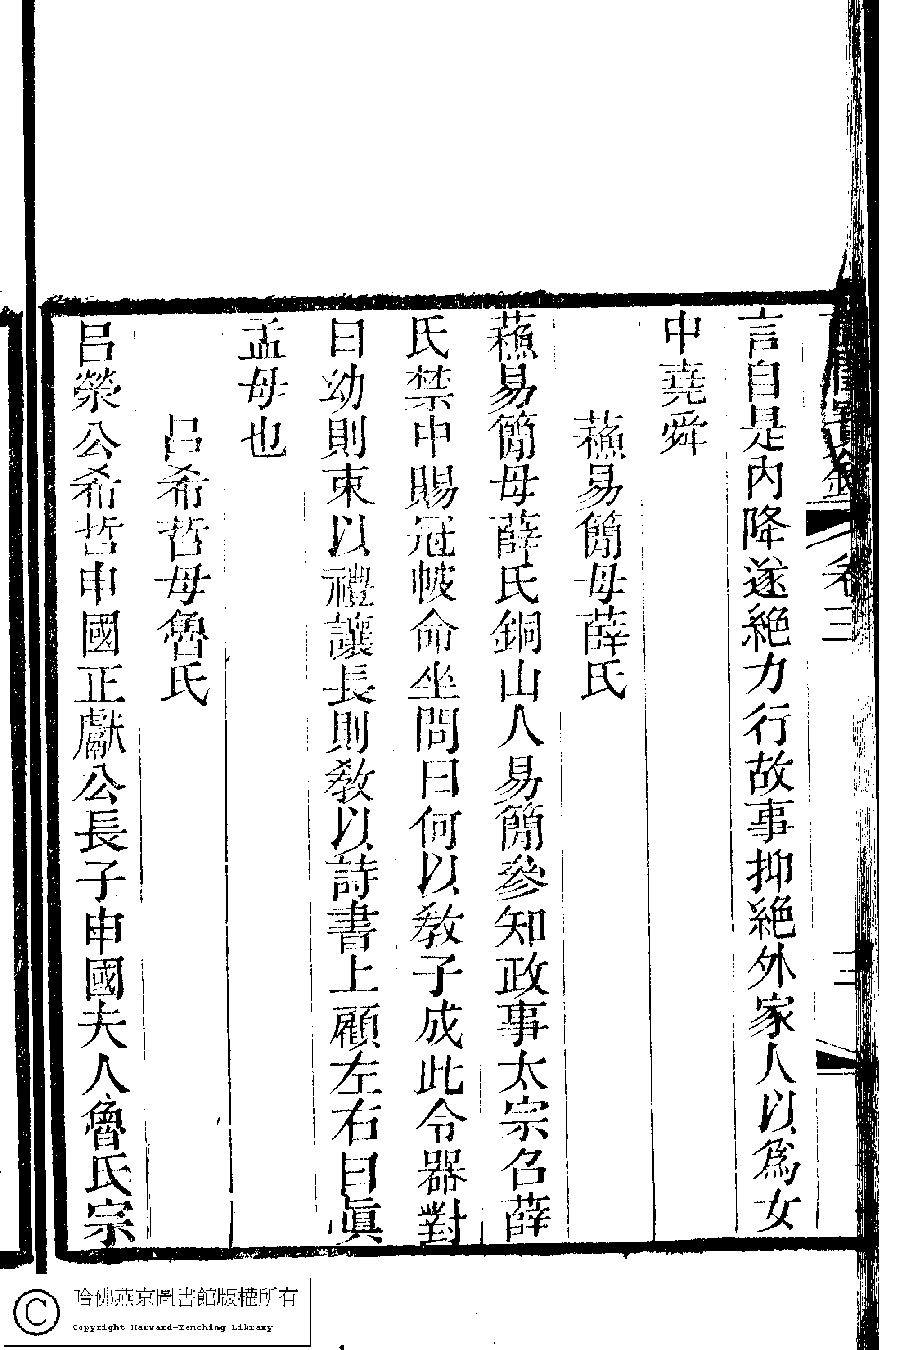 卷三
言自是內降遂絕力行故事抑絕外家人以爲女
中堯舜
蘓易簡母薛氏
蘓易簡母薛氏銅山人易簡參知政事太宗召薛
氏禁中賜冠帔命坐問曰何以敎子成此令器對
曰幼則束以禮讓長則敎以詩書上顧左右曰眞
孟母也
呂希哲母魯氏
呂滎公希哲申國正獻公長子申國夫人魯氏宗
哈佛燕京圖書館版權所有
Copyright Harvard-Yenching Library